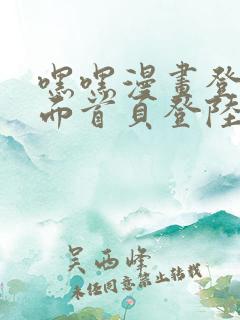 嘿嘿漫畫登
而首頁登陸
吴西峰
未经同意禁止转载